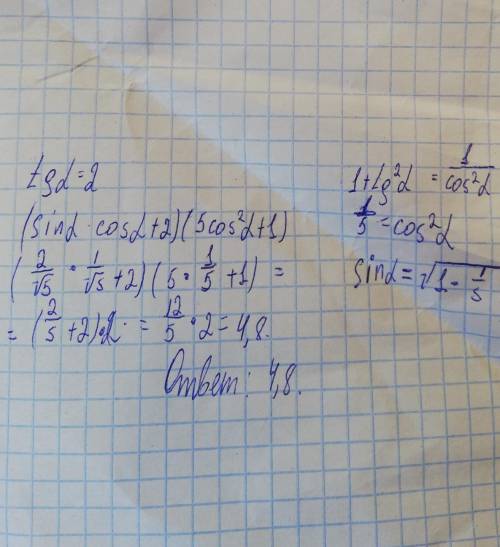 tgα = 2
(sinα · cosα + 2)(5cos²α + 1)
(2/√5 · 1/√5 + 2)(5 · 1/5 + 1) =
= (2/5 + 2) · 2 · = 12/5 · 2 = 4,8.
Ответ: 4,8.
1 + tg²α = 1/cos²α
1/5 = cos²α
sinα = √(1 - 1/5)